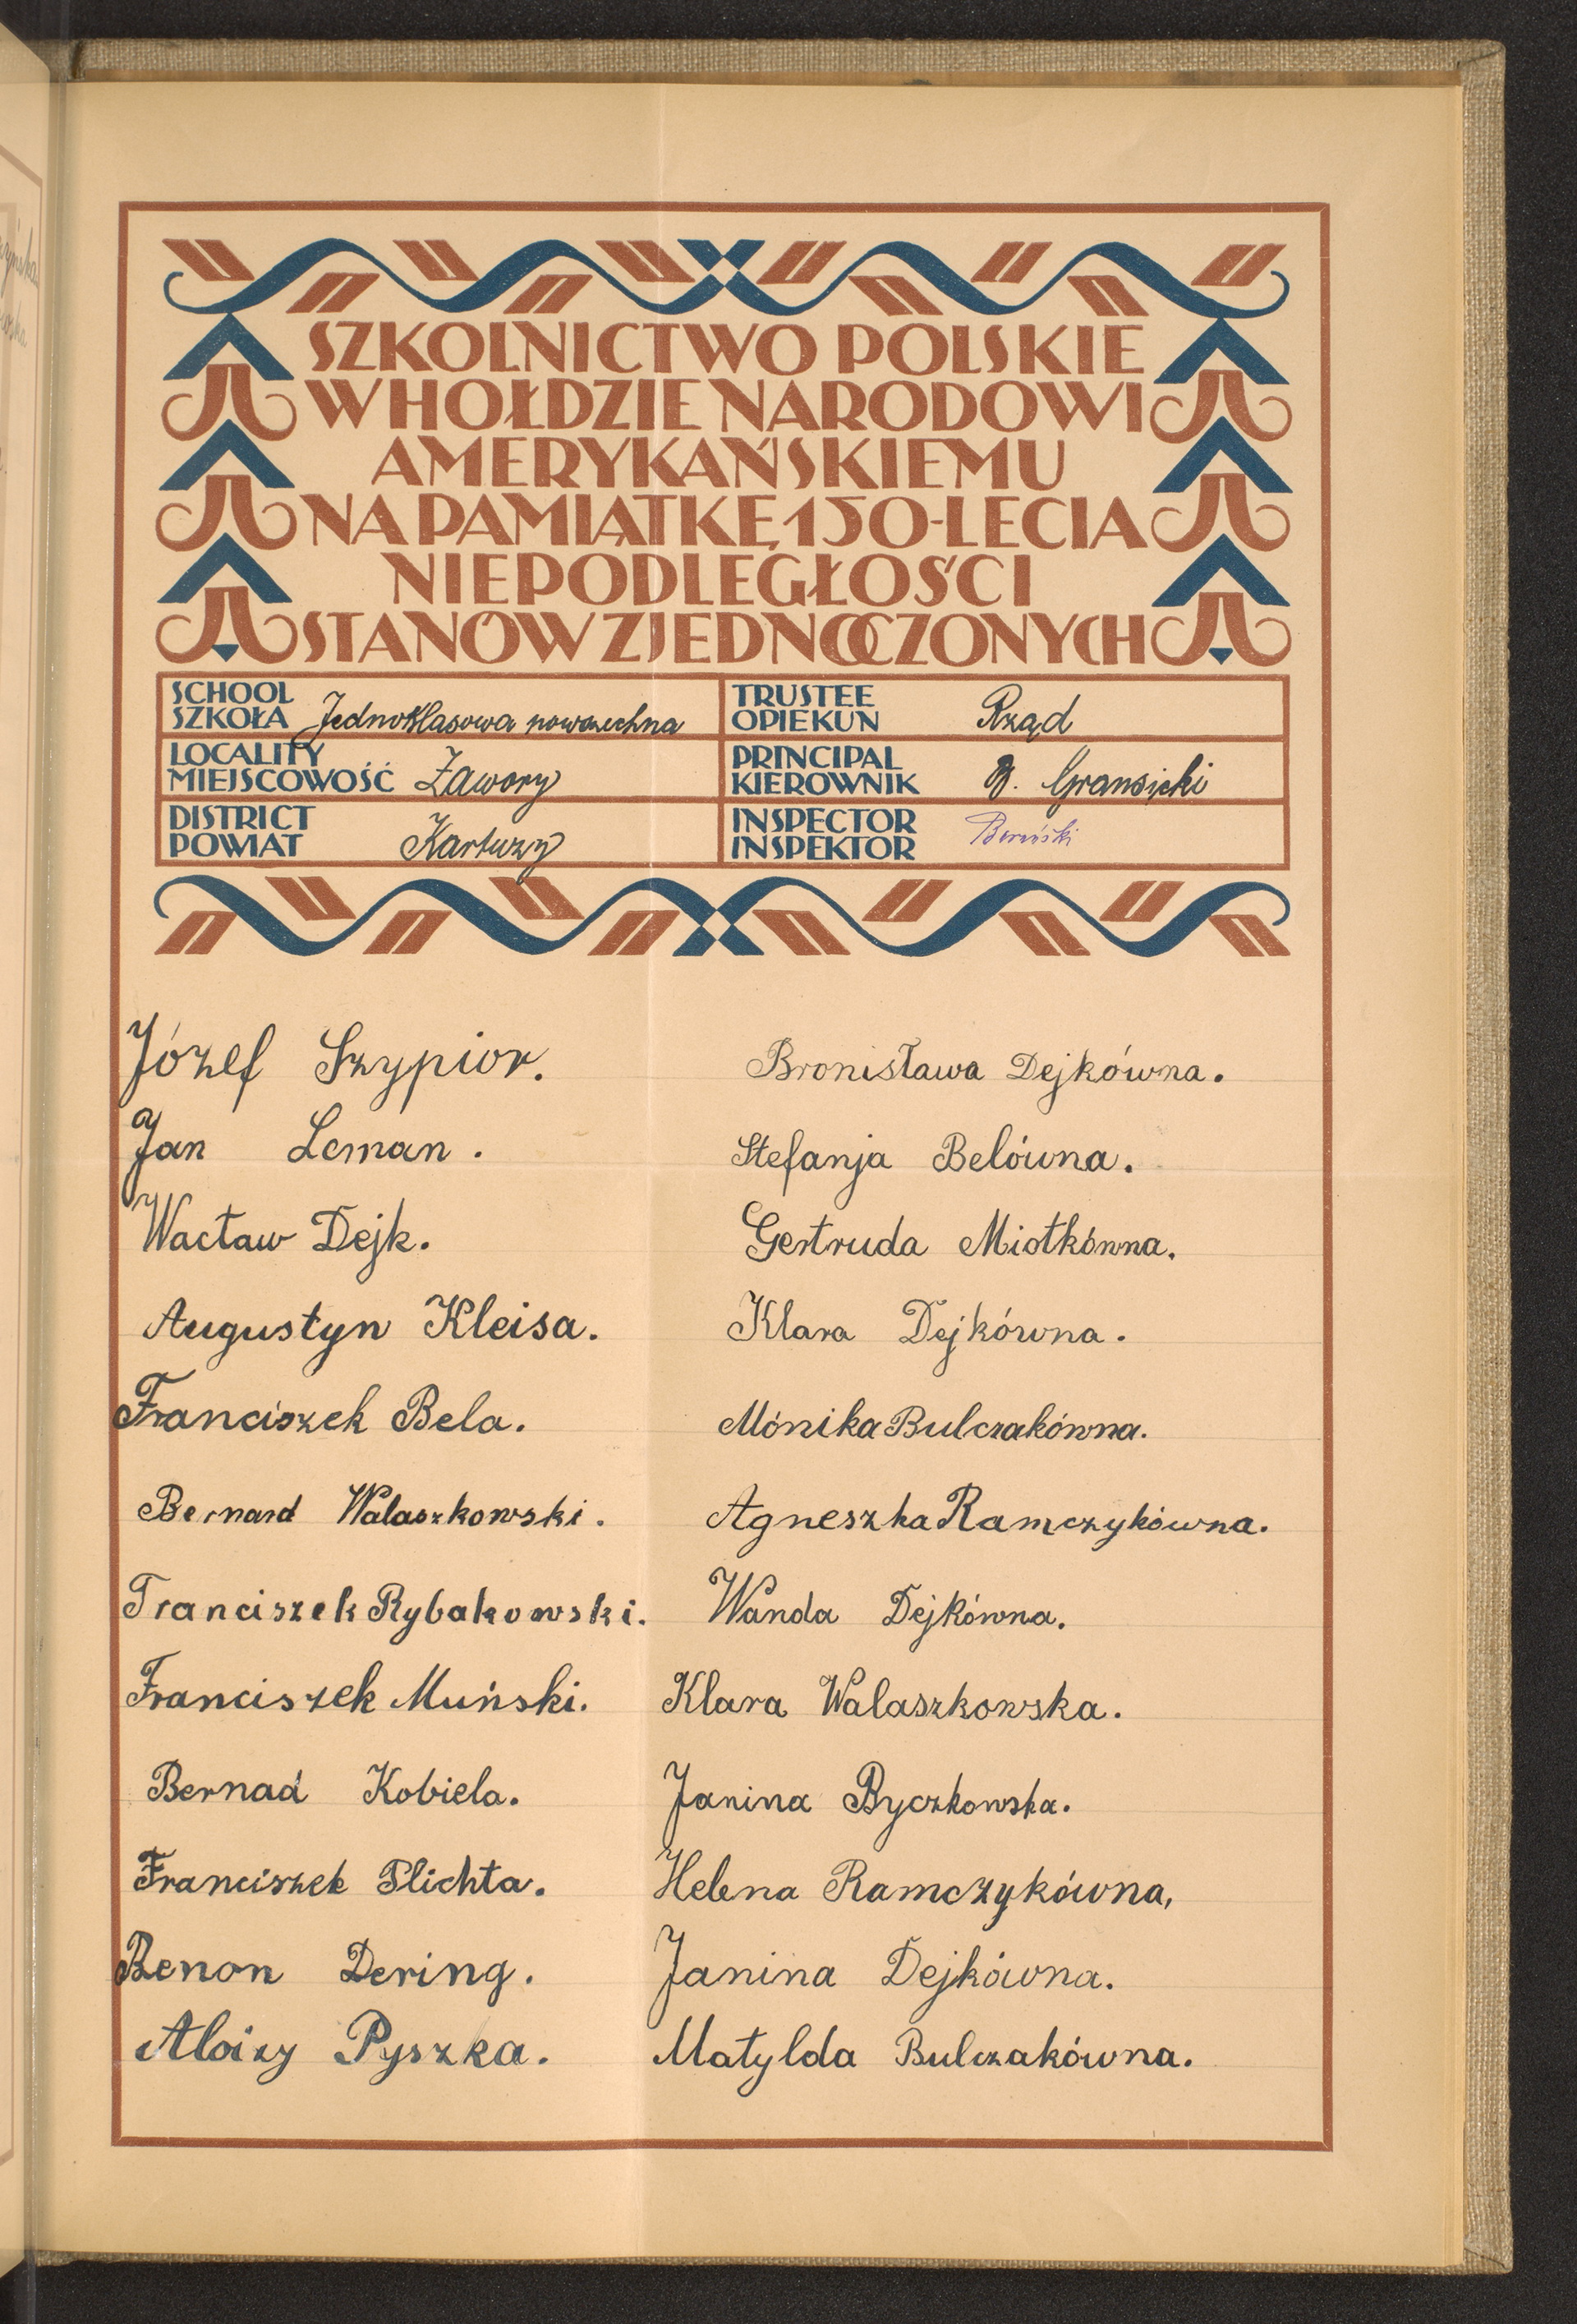 SZKOLNICTWO POLSKIE
W HOŁDZIE NARODOWI
AMERYKAŃSKIEMU
NA PAMIĄTKĘ 150-LECIA
NIEPODLEGŁOŚCI
STANÓW ZJEDNOCZONYCH
SCHOOL
SZKOŁA Jednoklasowa powszechna
TRUSTEE
OPIEKUN Rząd
LOCALITY
MIEJSCOWOŚĆ Zawory
PRINCIPAL
KIEROWNIK
DISTRICT
POWIAT Kartuzy
INSPECTOR
INSPEKTOR
Józef Szypior.
Bronisława Dejkówna.
Jan Leman.
Stefanja Belówna.
Wacław Dejk.
Gertruda Miotkówna.
Augustyn Kleisa.
Klara Dejkówna.
Franciszek Bela.
Mónika Bulczakówna.
Bernard Walaszkowski.
Agneszka Ramczykówna.
Franciszek Rybakowski.
Wanda Dejkówna.
Franciszek Muński.
Klara Walaszkowska.
Bernad Kobiela.
Janina Byczkowska.
Franciszek Plichta.
Helena Ramczykówna,
Benon Dering.
Janina Dejkówna.
Aloizy Pyszka.
Matylda Bulczakówna.